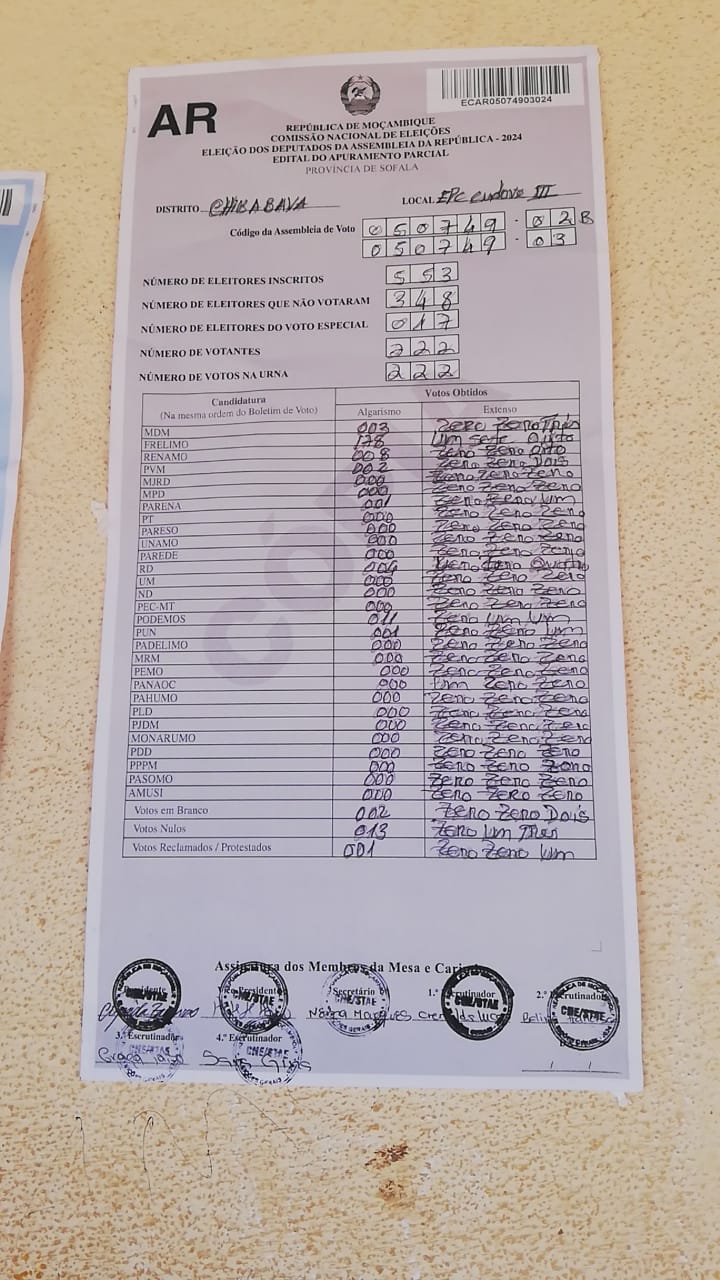 ECAR05074903024
AR
REPÚBLICA DE MOÇAMBIQUE
COMISSÃO NACIONAL DE ELEIÇÕES
ELEIÇÃO DOS DEPUTADOS DA ASSEMBLEIA DA REPÚBLICA - 2024
EDITAL DO APURAMENTO PARCIAL
PROVÍNCIA DE SOFALA
DISTRITO CHIBABAVA LOCAL EPC III
Código da Assembleia de Voto 050749 - 02 B
050749 - 03
NÚMERO DE ELEITORES INSCRITOS 553
NÚMERO DE ELEITORES QUE NÃO VOTARAM 348
NÚMERO DE ELEITORES DO VOTO ESPECIAL 017
NÚMERO DE VOTANTES 222
NÚMERO DE VOTOS NA URNA 222
Candidatura Votos Obtidos
(Na mesma ordem do Boletim de Voto) Algarismo Extenso
MDM 003 Zero Zero Três
FRELIMO 178 Um sete Oito
RENAMO 008 Zero Zero Oito
PVM 002 Zero Zero Dois
MJRD 000 Zero Zero Zero
MPD 000 Zero Zero Zero
PARENA 001 Zero Zero Um
PT 000 Zero Zero Zero
PARESO 000 Zero Zero Zero
UNAMO 000 Zero Zero Zero
PAREDE 000 Zero Zero Zero
RD 004 Zero Zero Quatro
UM 000 Zero Zero Zero
ND 000 Zero Zero Zero
PEC-MT 000 Zero Zero Zero
PODEMOS 011 Zero Um Um
PUN 001 Zero Zero Um
PADELIMO 000 Zero Zero Zero
MRM 000 Zero Zero Zero
PEMO 000 Zero Zero Zero
PANAOC 000 Zero Zero
PAHUMO 000 Zero Zero Zero
PLD 000 Zero Zero Zero
PJDM 000 Zero Zero Zero
MONARUMO 000 Zero Zero Zero
PDD 000 Zero Zero Zero
PPPM 000 Zero Zero Zero
PASOMO 000 Zero Zero Zero
AMUSI 000 Zero Zero Zero
Votos em Branco 002 Zero Zero Dois
Votos Nulos 013 Zero Um Tres
Votos Reclamados / Protestados 001 Zero Zero Um
CÓPIA
Assinatura dos Membros da Mesa e Carimbo
Presidente Presidente Secretário 1.º Escrutinador 2.º Escrutinador
Marques
3.º Escrutinador 4.º Escrutinador
CNE/STAE